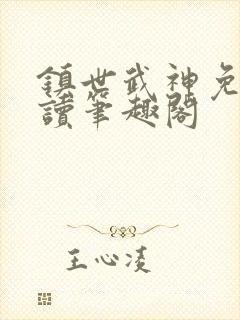 鎮世武神免
讀筆趣閣
王心凌